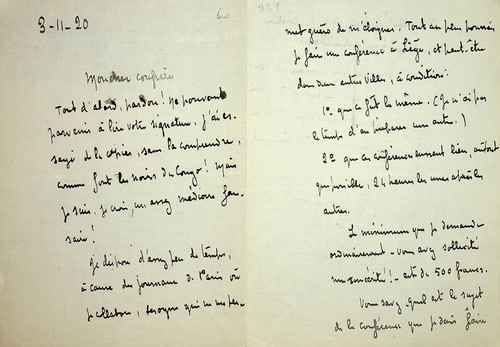 3-11-20
Mon cher confrère
Tout d'abord, pardon ! Ne pouvant
parvenir à lire votre signature, j'ai es-
sayé de la copier, sans la comprendre,
comme font les noirs du Congo ! Mais
je suis, je crois, un assez médiocre faus-
saire !
Je dispose d'assez peu de temps,
à cause des journaux de Paris où
je collabore, besogne qui ne me per-
met guère de m'éloigner. Tout au plus pourrais
je faire une conférence à Liège, et peut-être
dans deux autres villes, à condition :
1º que ce fût la même. (Je n'ai pas
le temps d'en préparer une autre.)
2º que ces conférences eussent lieu, autant
que possible, 24 heures les unes après les
autres.
Le minimum que je demande
ordinairement - vous avez sollicité
ma sincérité ! - est de 500 francs.
Vous savez quel est le sujet
de la conférence que je dois faire